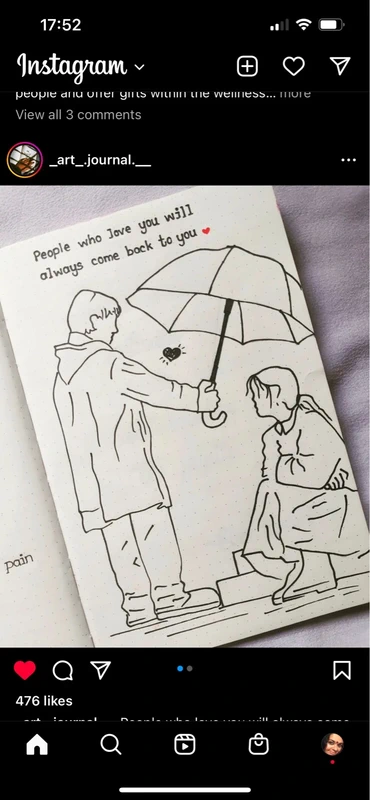 17:52
Instagram
people and offer gifts within the wellness... more
View all 3 comments
_art_.journal.__
People who love you will
always come back to you ❤
pain
476 likes
_art_.journal.__ People who love you will always come